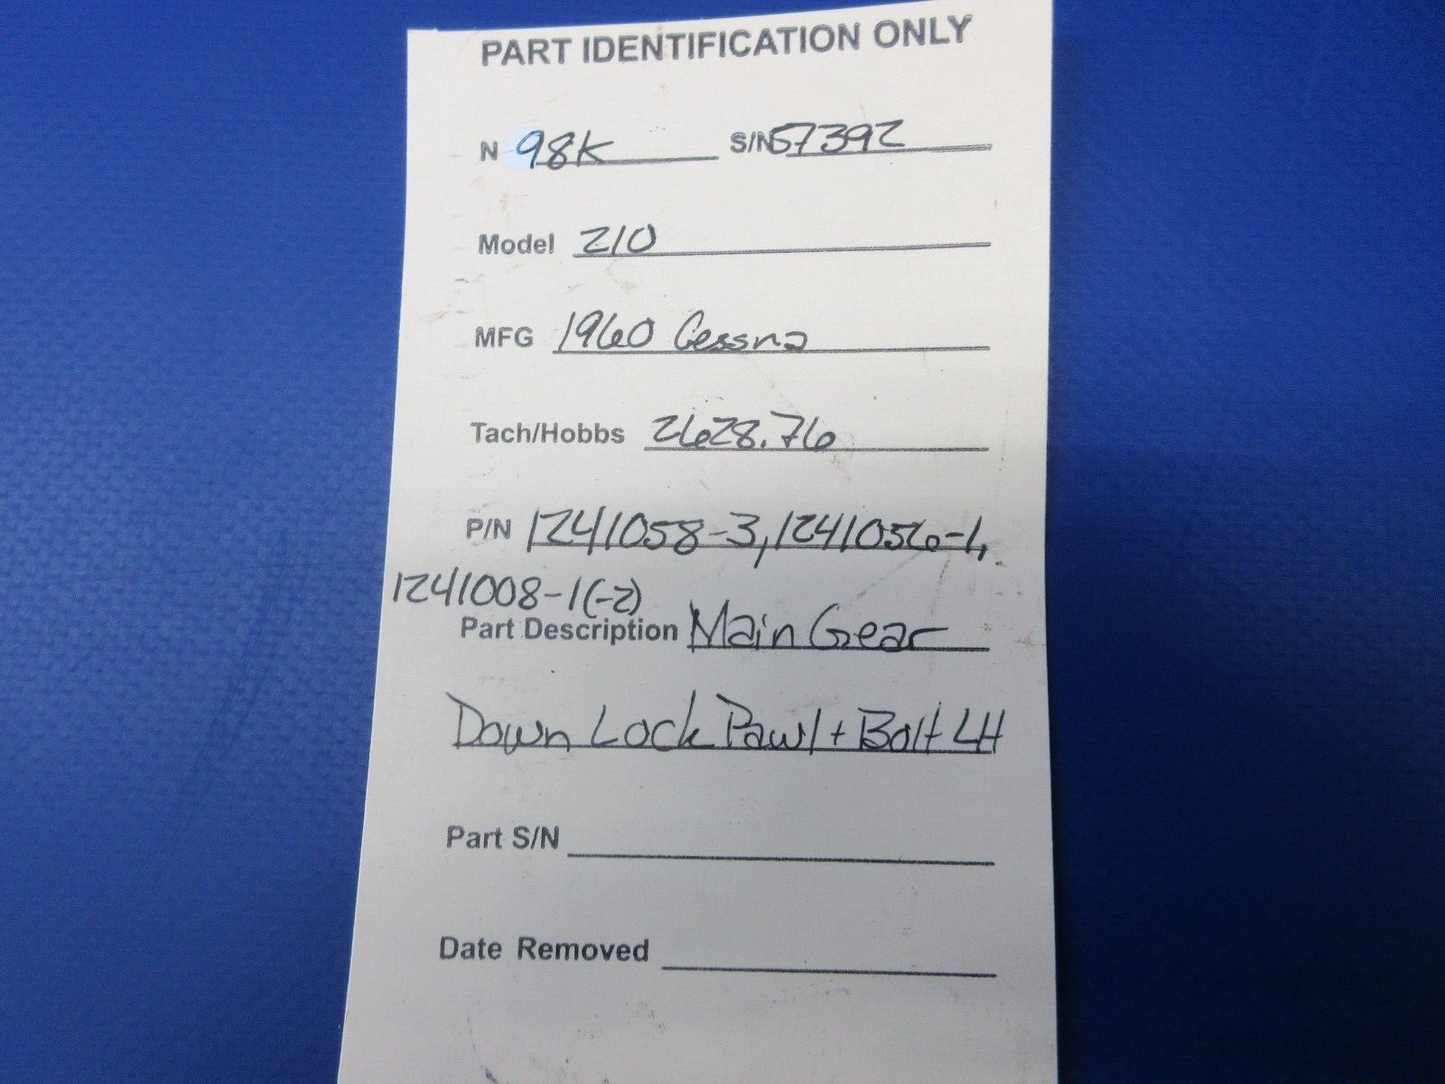 PART IDENTIFICATION ONLY
N 98K S/N 57392
Model 210
MFG 1960 Cessna
Tach/Hobbs 2628.76
P/N 1241058-3, 1241056-1,
1241008-1(-2)
Part Description Main Gear
Down Lock Pawl + Bolt LH
Part S/N
Date Removed